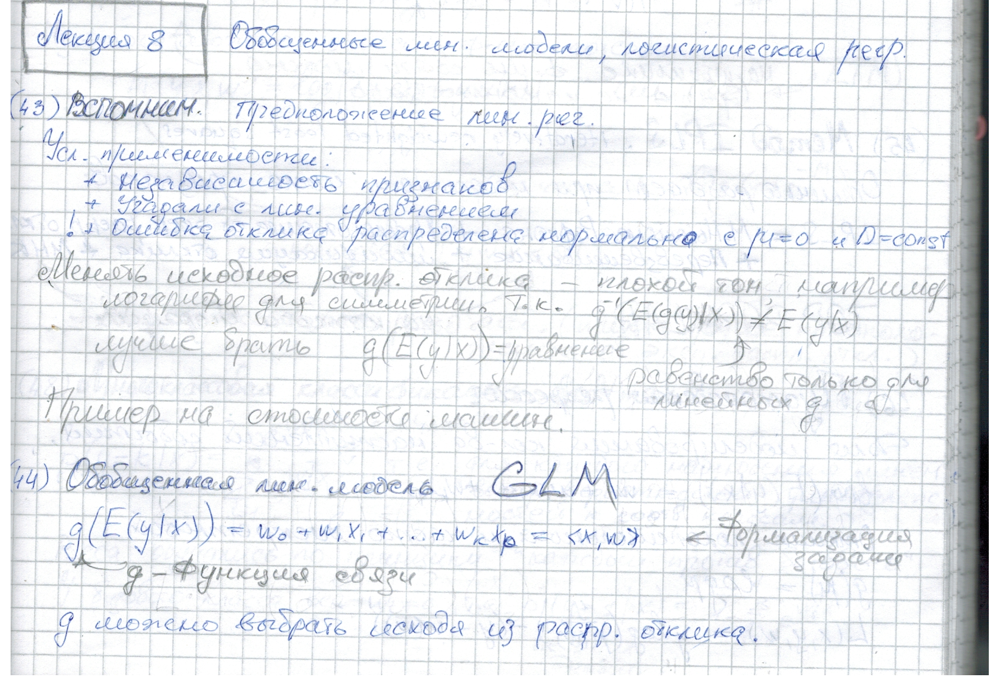 Лекция 8 Обобщенные лин. модели, логистическая регр.
(43) Вспомним. Предположение лин. рег.
Усл. применимости:
+ Независимость признаков
+ Угадали с лин. уравнением
! + Ошибка отклика распределена нормально с μ=0 и D=const
Менять исходное распр. отклика – плохой тон, например
логарифм для симметрии, т.к. g⁻¹(E(g(y)|x)) ≠ E(y|x)
лучше брать g(E(y|x))=уравнение
равенство только для
линейных g
Пример на стоимости машин.
(44) Обобщенная лин. модель GLM
g(E(y|x)) = w₀ + w₁x₁ + ... + wₖxₚ = <x,w> ← Формализация
задачи
g – Функция связи
g можно выбрать исходя из распр. отклика.